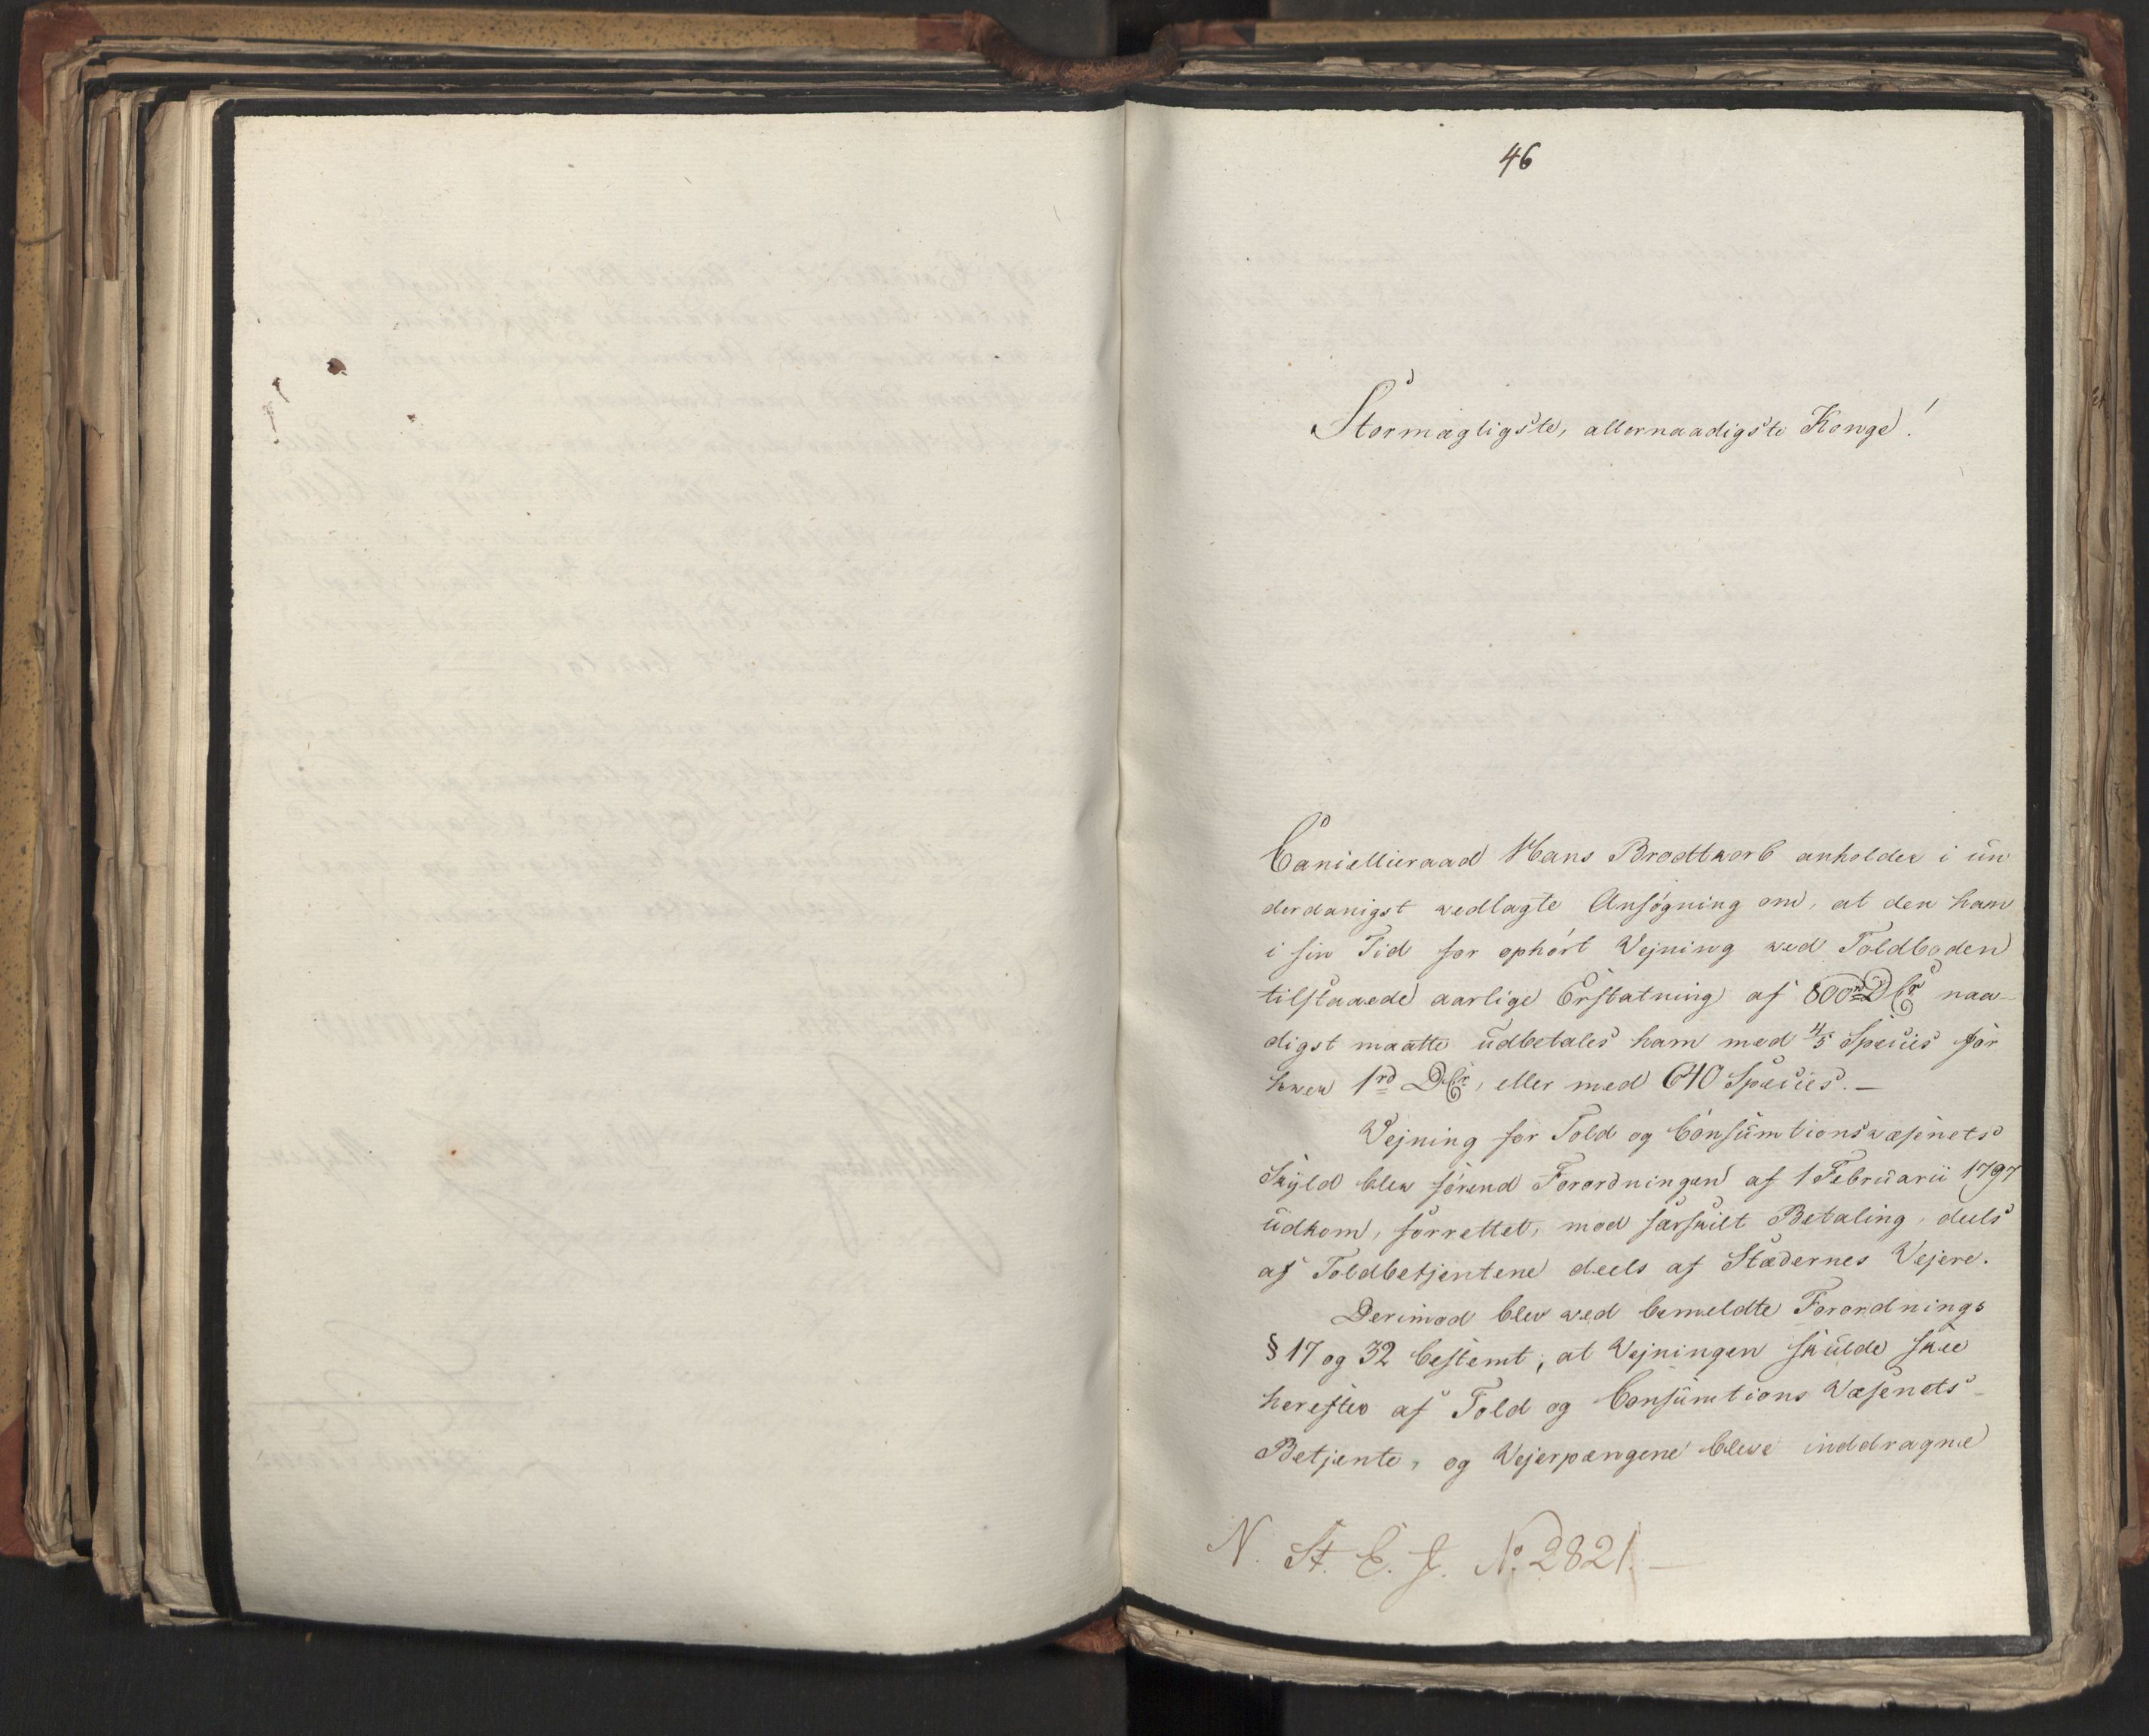 46
Stormægtigste, allernaadigste Konge!
Cancellieraad Hans Brodtkorb anholder i un
derdanigst vedlagte Ansøgning om, at den ham
i sin Tid for ophørt Vejning ved Toldboden
tilstaaede aarlige Erstatning af 800 rd DCt naa-
digst maatte udbetales ham med 4/5 Species for
hver 1 rd DCt, eller med 640 Species. —
Vejning for Told og Consumtionsvæsenets
Skyld blev førend Forordningen af 1 Februarii 1797
udkom, forrettet, mod særskilt Betaling, deels
af Toldbetjentene deels af Stædernes Vejere.
Derimod blev ved bemeldte Forordnings
§ 17 og 32 bestemt, at Vejningen skulde skee
herefter af Told og Consumtions Væsenets
Betjente, og Vejerpengene bleve inddragne
N. St. E. J. No 2821. —